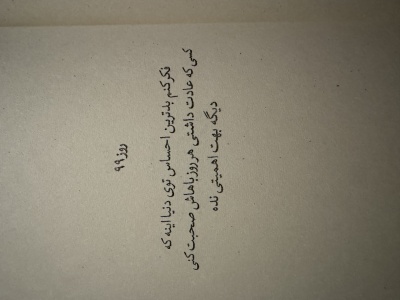 روز ۹۹
فکر کنم بدترین احساس توی دنیا اینه که
کسی که عادت داشتی هر روز باهاش صحبت کنی
دیگه بهت اهمیتی نده